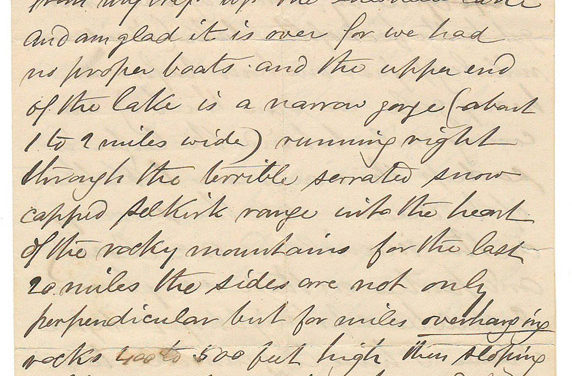 from my trip up the
and am glad it is over for we had
no proper boats. and the upper end
of the lake is a narrow gorge (about
1 to 2 miles wide) running right
through the terrible serrated snow
capped Selkirk range into the heart
of the rocky mountains for the last
20 miles the sides are not only
perpendicular but for miles overhanging
rocks 400 to 500 feet high then sloping